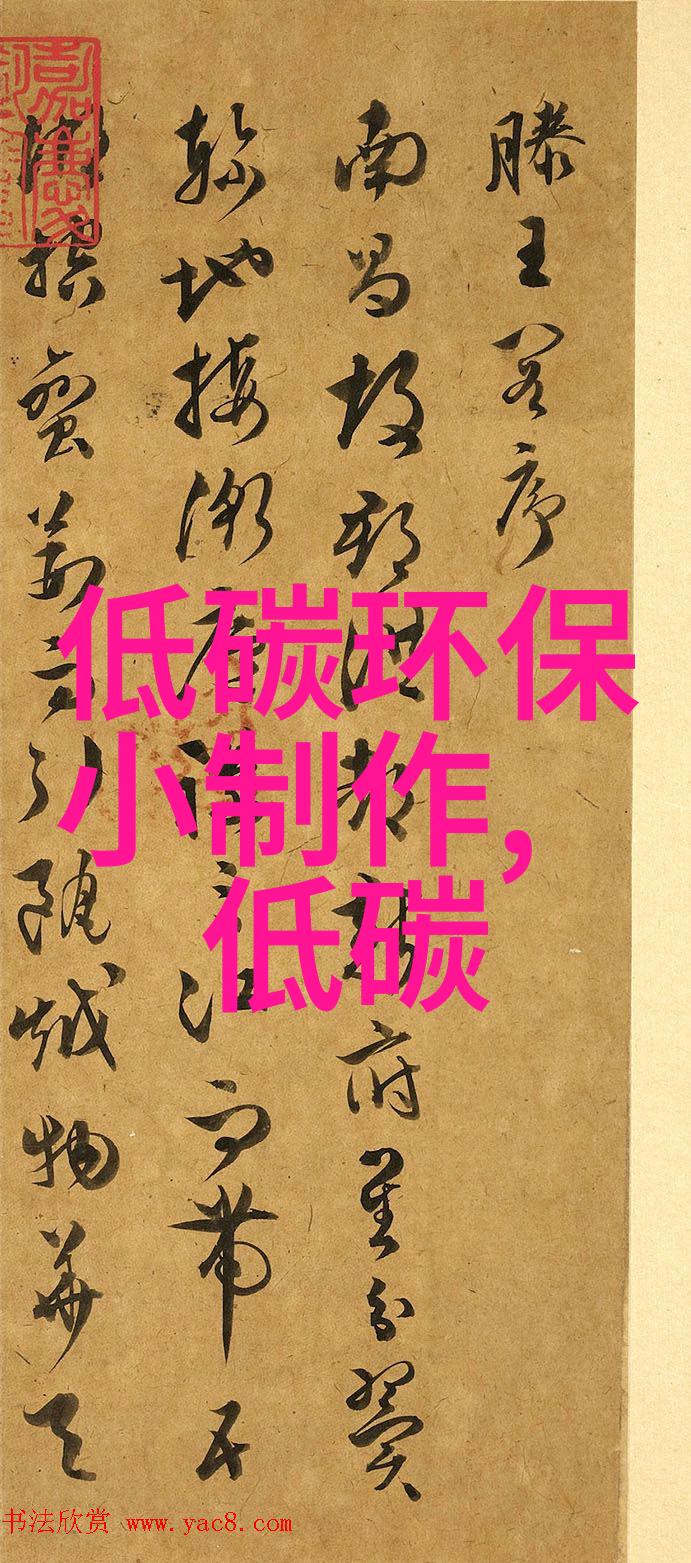 滕王閣序
南昌故郡洪都新府星分翼
軫地接衡廬襟三江而帶五
湖控蠻荊而引甌越物華天
低碳环保
小制作,
低碳
书法欣赏 www.yac8.com